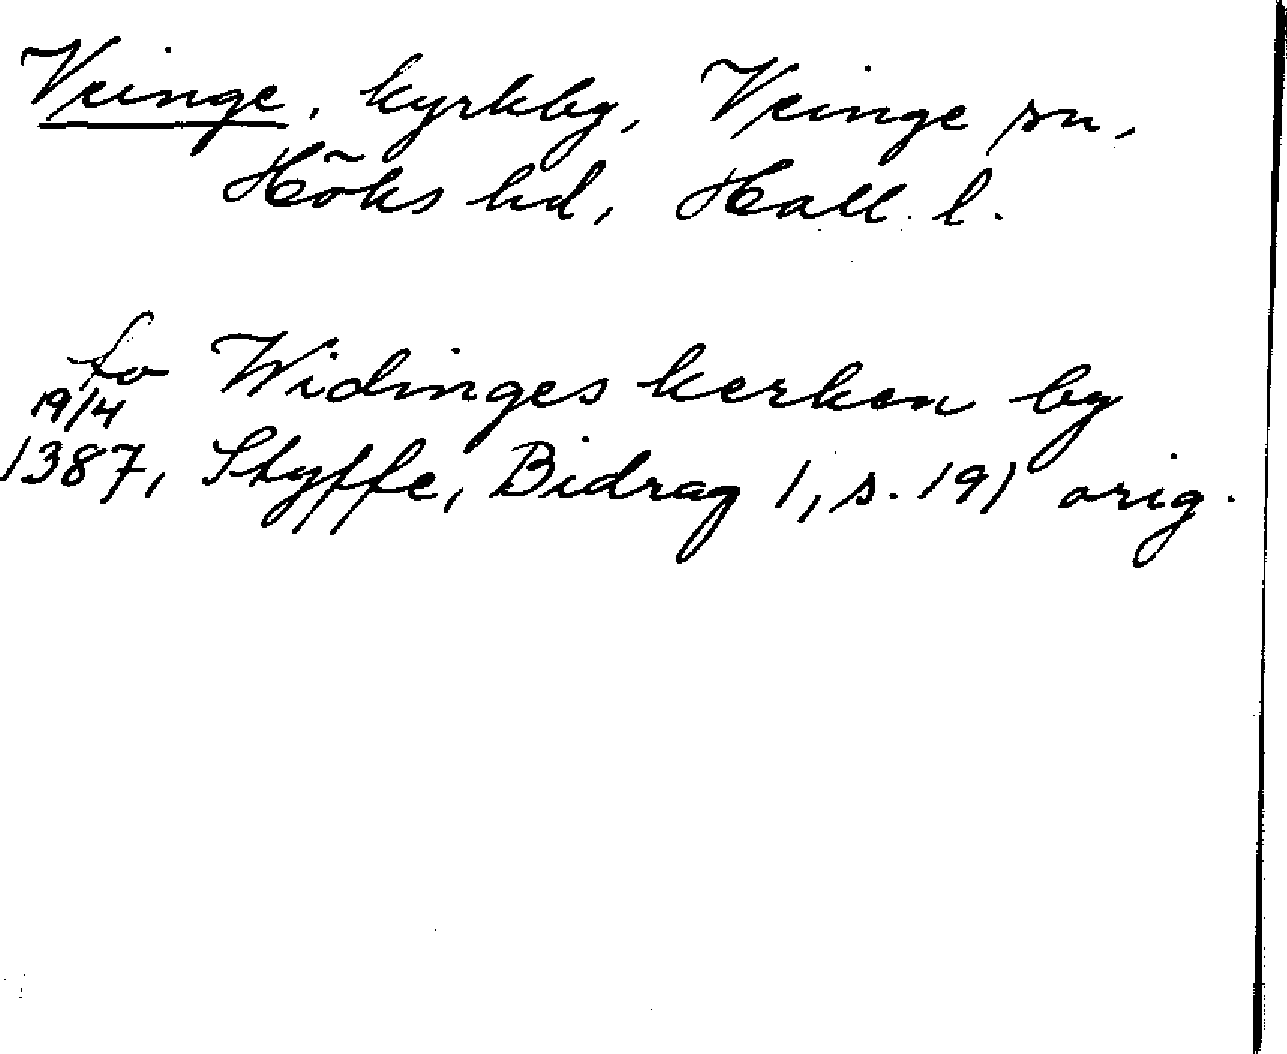 Veinge, kyrkby, Veinge sn,
Höks hd, Hall. l.
to Widinges kerken by
19/4
1387, Styffe, Bidrag 1, s. 191 orig.